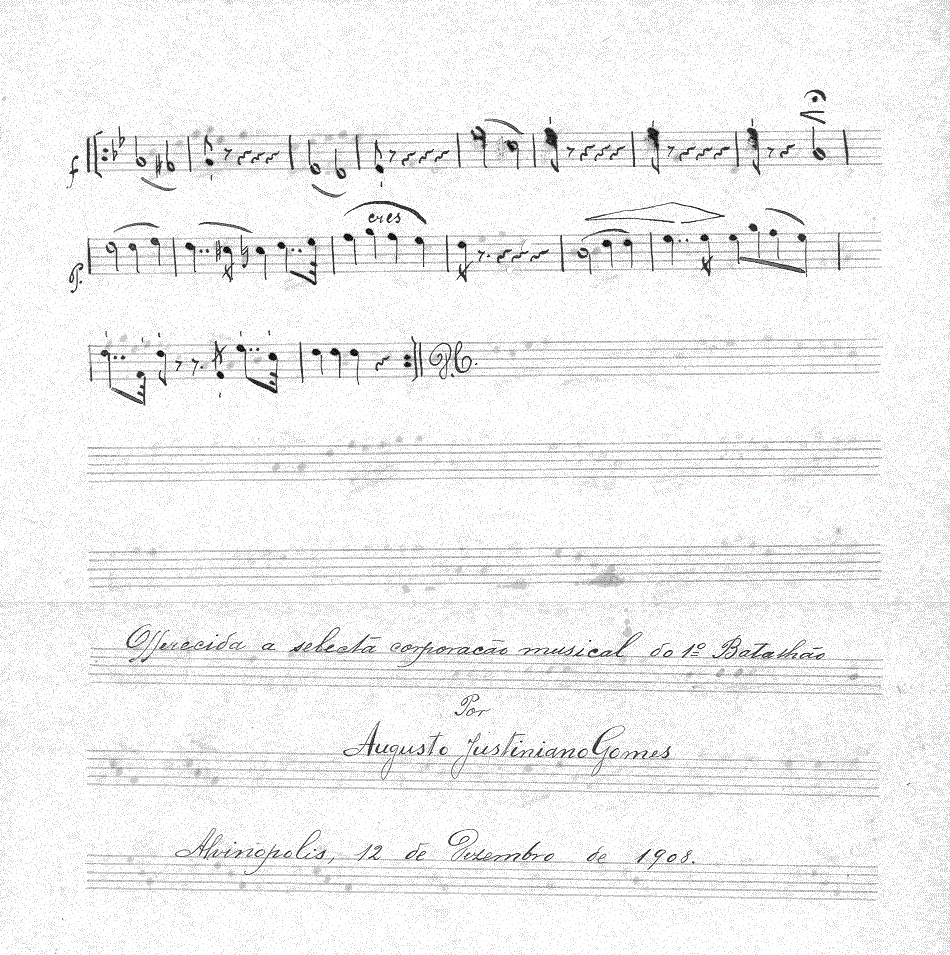 f
cres
p.
D.C.
Offerecida a selecta corporação musical do 1º Batalhão
Por
Augusto Justiniano Gomes
Alvinopolis, 12 de Dezembro de 1908.